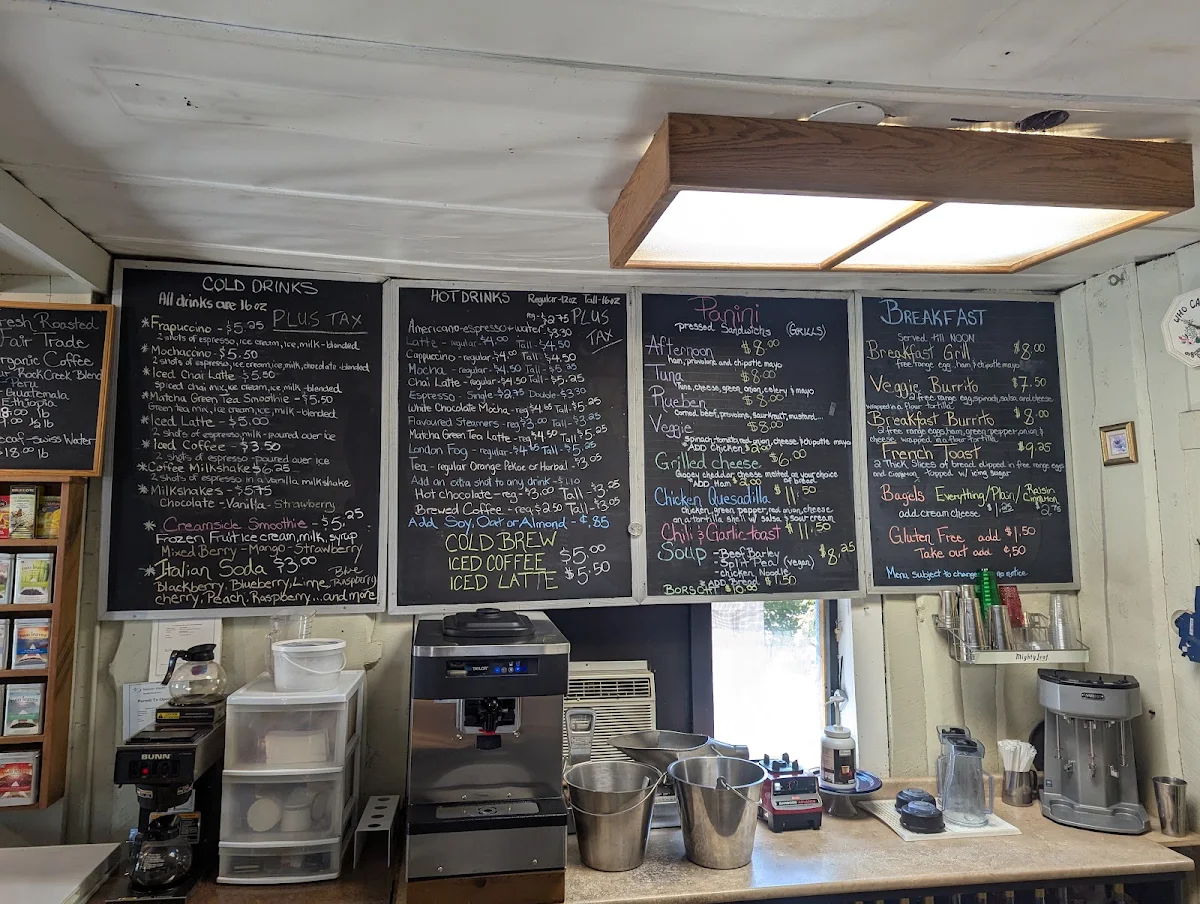 resh Roasted
Fair Trade
rganic Coffee
Rock Creek Blend
Peru
Guatemala
Ethiopia
lb
½ lb
ecaf - Swiss Water
lb
COLD DRINKS
All drinks are 16 oz
PLUS TAX
*Frapuccino - $5.25
2 shots of espresso, ice cream, ice, milk - blended
*Mochaccino - $5.50
2 shots of espresso, ice cream, ice, milk, chocolate - blended
*Iced Chai Latte - $5.50
spiced chai mix, ice cream, ice, milk - blended
*Matcha Green Tea Smoothie - $5.50
Green tea mix, ice cream, ice, milk - blended
*Iced Latte - $5.00
2 shots of espresso, milk - poured over ice
*Iced Coffee - $3.50
2 shots of espresso - poured over ice
*Coffee Milkshake $6.25
2 shots of espresso in a vanilla milkshake
*Milkshakes - $5.75
Chocolate - Vanilla - Strawberry
*Creamside Smoothie - $5.25
Frozen Fruit, ice cream, milk, syrup
Mixed Berry - Mango - Strawberry
*Italian Soda $3.00
Blue Raspberry
Blackberry, Blueberry, Lime,
cherry, Peach, Raspberry...and more
HOT DRINKS Regular-12oz Tall-16oz
PLUS TAX
Americano-espresso + water reg-$2.75 $3.30
Latte - regular $4.00 Tall - $4.50
Cappuccino - regular - $4.00 Tall - $4.50
Mocha - regular - $4.50 Tall - $5.25
Chai Latte - regular - $4.50 Tall - $5.25
Espresso - Single - $2.75 Double - $3.30
White Chocolate Mocha - reg $4.65 Tall - $5.25
Flavoured Steamers - reg - $2.75
Matcha Green Tea Latte - reg $4.50 Tall $5.25
London Fog - regular $4.50 Tall -
Tea - regular Orange Pekoe or Herbal - $3.05
Add an extra shot to any drink - $1.10
Hot chocolate - reg - $3.00 Tall - $3.25
Brewed Coffee - reg $2.50 Tall - $3.05
Add Soy, Oat or Almond - ¢.85
COLD BREW
ICED COFFEE $5.00
ICED LATTE $5.50
Panini
pressed Sandwichs (GRILLS)
Afternoon $8.00
ham, provolone, and chipotle mayo
Tuna $8.00
tuna, cheese, green onion, celery & mayo
Rueben $8.00
corned beef, provolone, saurkraut, mustard...
Veggie $8.00
spinach, tomato, red onion, cheese & chipotle mayo
*ADD Chicken $2.00
Grilled cheese $6.00
Gooey cheddar cheese melted on your choice of bread
*ADD Ham 2.00
Chicken Quesadilla $11.50
chicken, green pepper, red onion, cheese
on a tortilla shell w/ salsa & sour cream
Chili & Garlic toast $11.50
Soup - Beef Barley
- Split Pea (vegan) $8.25
- chicken Noodle
*ADD Bread $1.50
BORSCHT $10.00
BREAKFAST
Served till NOON
Breakfast Grill $8.00
free range egg, ham & chipotle mayo
Veggie Burrito $7.50
2 free range eggs, spinach, salsa, and cheese
wrapped in a flour tortilla
Breakfast Burrito $8.00
2 free range eggs, ham, green pepper, onion &
cheese wrapped in a flour tortilla
French Toast $9.25
2 Thick Slices of bread dipped in free range eggs
and cinnamon - topped w/ icing sugar
Bagels Everything/Plain/Raisin Cinnamon
add cream cheese $1.25 $2.75
Gluten Free add $1.50
Take out add ¢.50
Menu subject to change no notice
WHO CA
TAYLOR
BUNN
Mighty Leaf